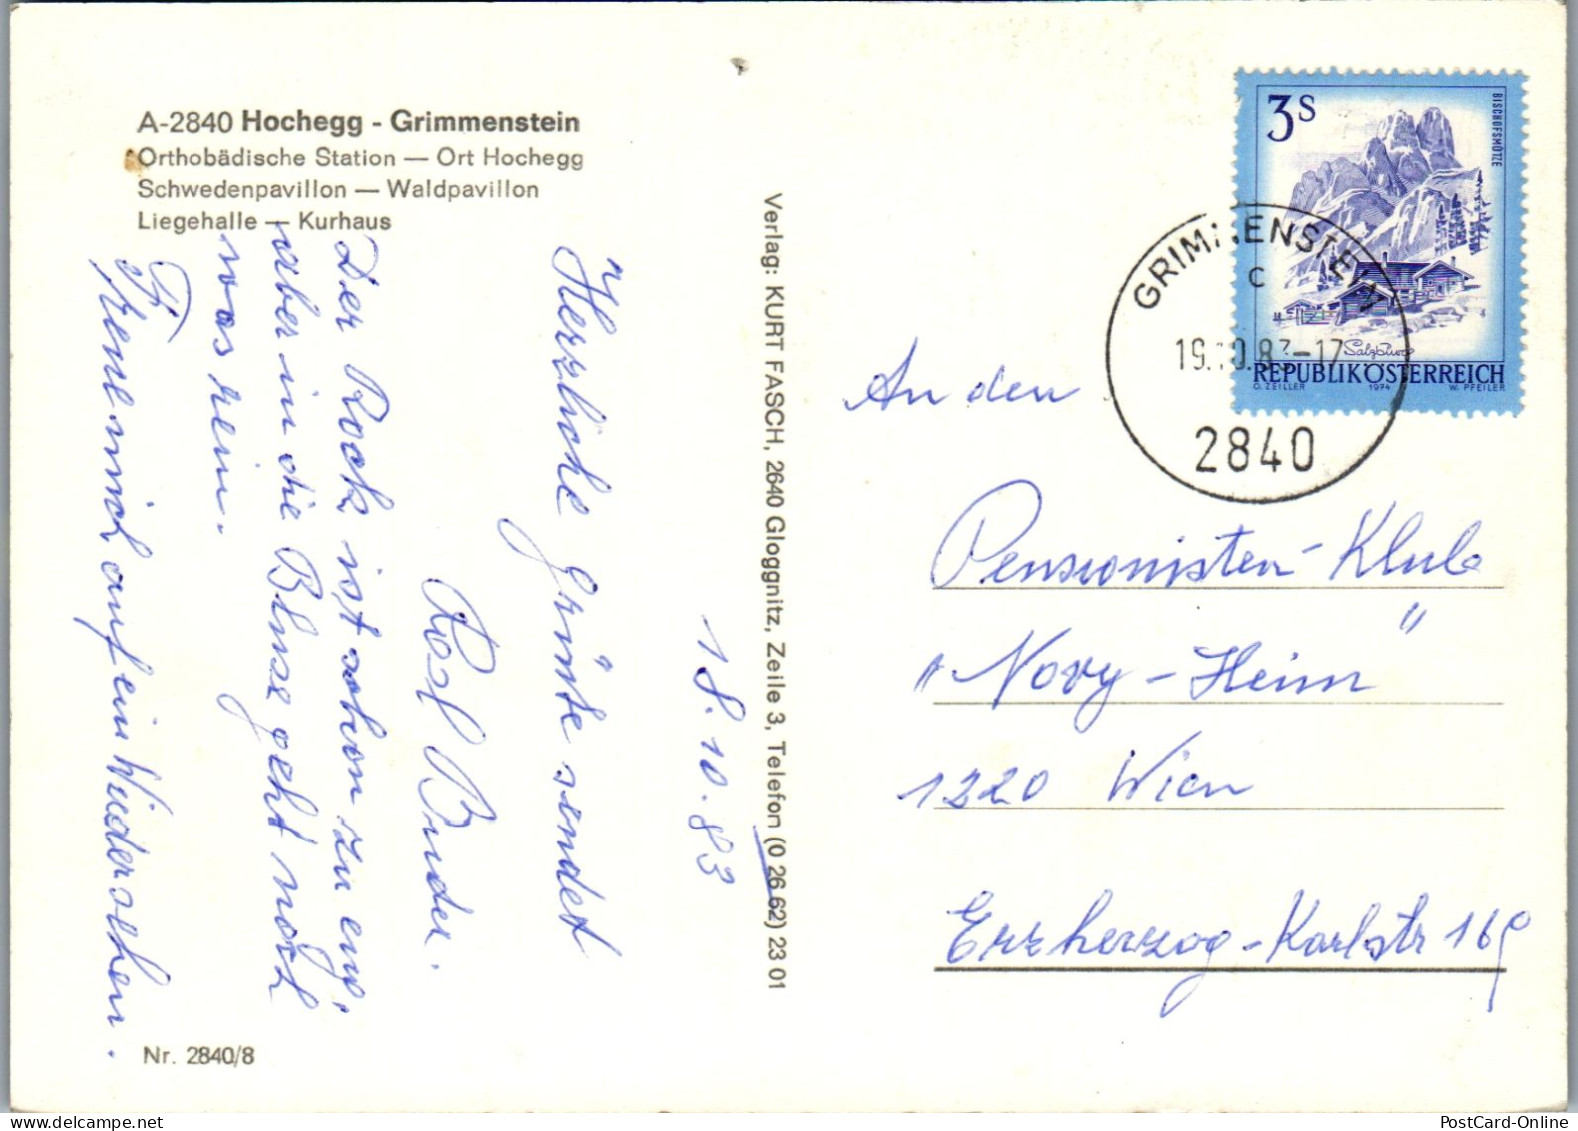 A-2840 Hochegg - Grimmenstein
Orthobädische Station — Ort Hochegg
Schwedenpavillon — Waldpavillon
Liegehalle — Kurhaus
18.10.83
Herzliche Grüße sendet
Rosl Bruder.
Der Rock ist schon zu eng,
aber in die Bluse geht noch
was rein.
Freue mich auf ein Wiedersehen.
Nr. 2840/8
Verlag: KURT FASCH, 2640 Gloggnitz, Zeile 3, Telefon (0 26 62) 23 01
3S
BISCHOFSMÜTZE
Salzburg
REPUBLIK ÖSTERREICH
O. ZEILLER 1974 W. PFEILER
GRIMMENSTEIN
C
19.10.83-17
2840
An den
Pensionisten-Klub
"Novy-Heim"
1220 Wien
Erzherzog-Karlstr 169
PostCard-Online